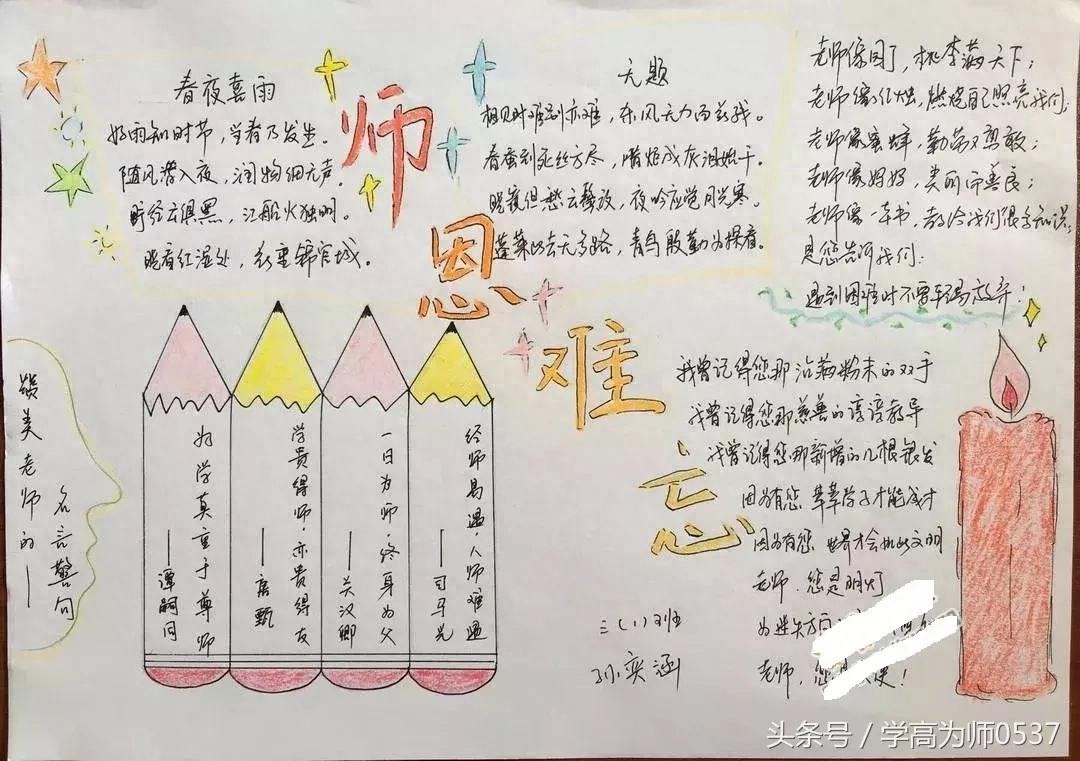 师恩难忘
春夜喜雨
好雨知时节,当春乃发生。
随风潜入夜,润物细无声。
野径云俱黑,江船火独明。
晓看红湿处,花重锦官城。
无题
相见时难别亦难,东风无力百花残。
春蚕到死丝方尽,蜡炬成灰泪始干。
晓镜但愁云鬓改,夜吟应觉月光寒。
蓬莱此去无多路,青鸟殷勤为探看。
老师像园丁,桃李满天下;
老师像红烛,燃烧自己照亮我们;
老师像蜜蜂,勤劳又勇敢;
老师像妈妈,美丽而善良;
老师像一本书,教给我们很多知识;
是您告诉我们:
遇到困难时不要轻易放弃!
颂美老师的——
名言警句
为学莫重于尊师
——谭嗣同
学贵得师,亦贵得友
——唐甄
一日为师,终身为父
——关汉卿
经师易遇,人师难遇
——司马光
我曾记得您那沾满粉末的双手
我曾记得您那慈善的谆谆教导
我曾记得您那新增的几根银发
因为有您 莘莘学子才能成才
因为有您 世界才会如此文明
老师,您是明灯
为迷失方向
老师,您是 使!
三(1)班
孙奕涵
头条号 / 学高为师0537